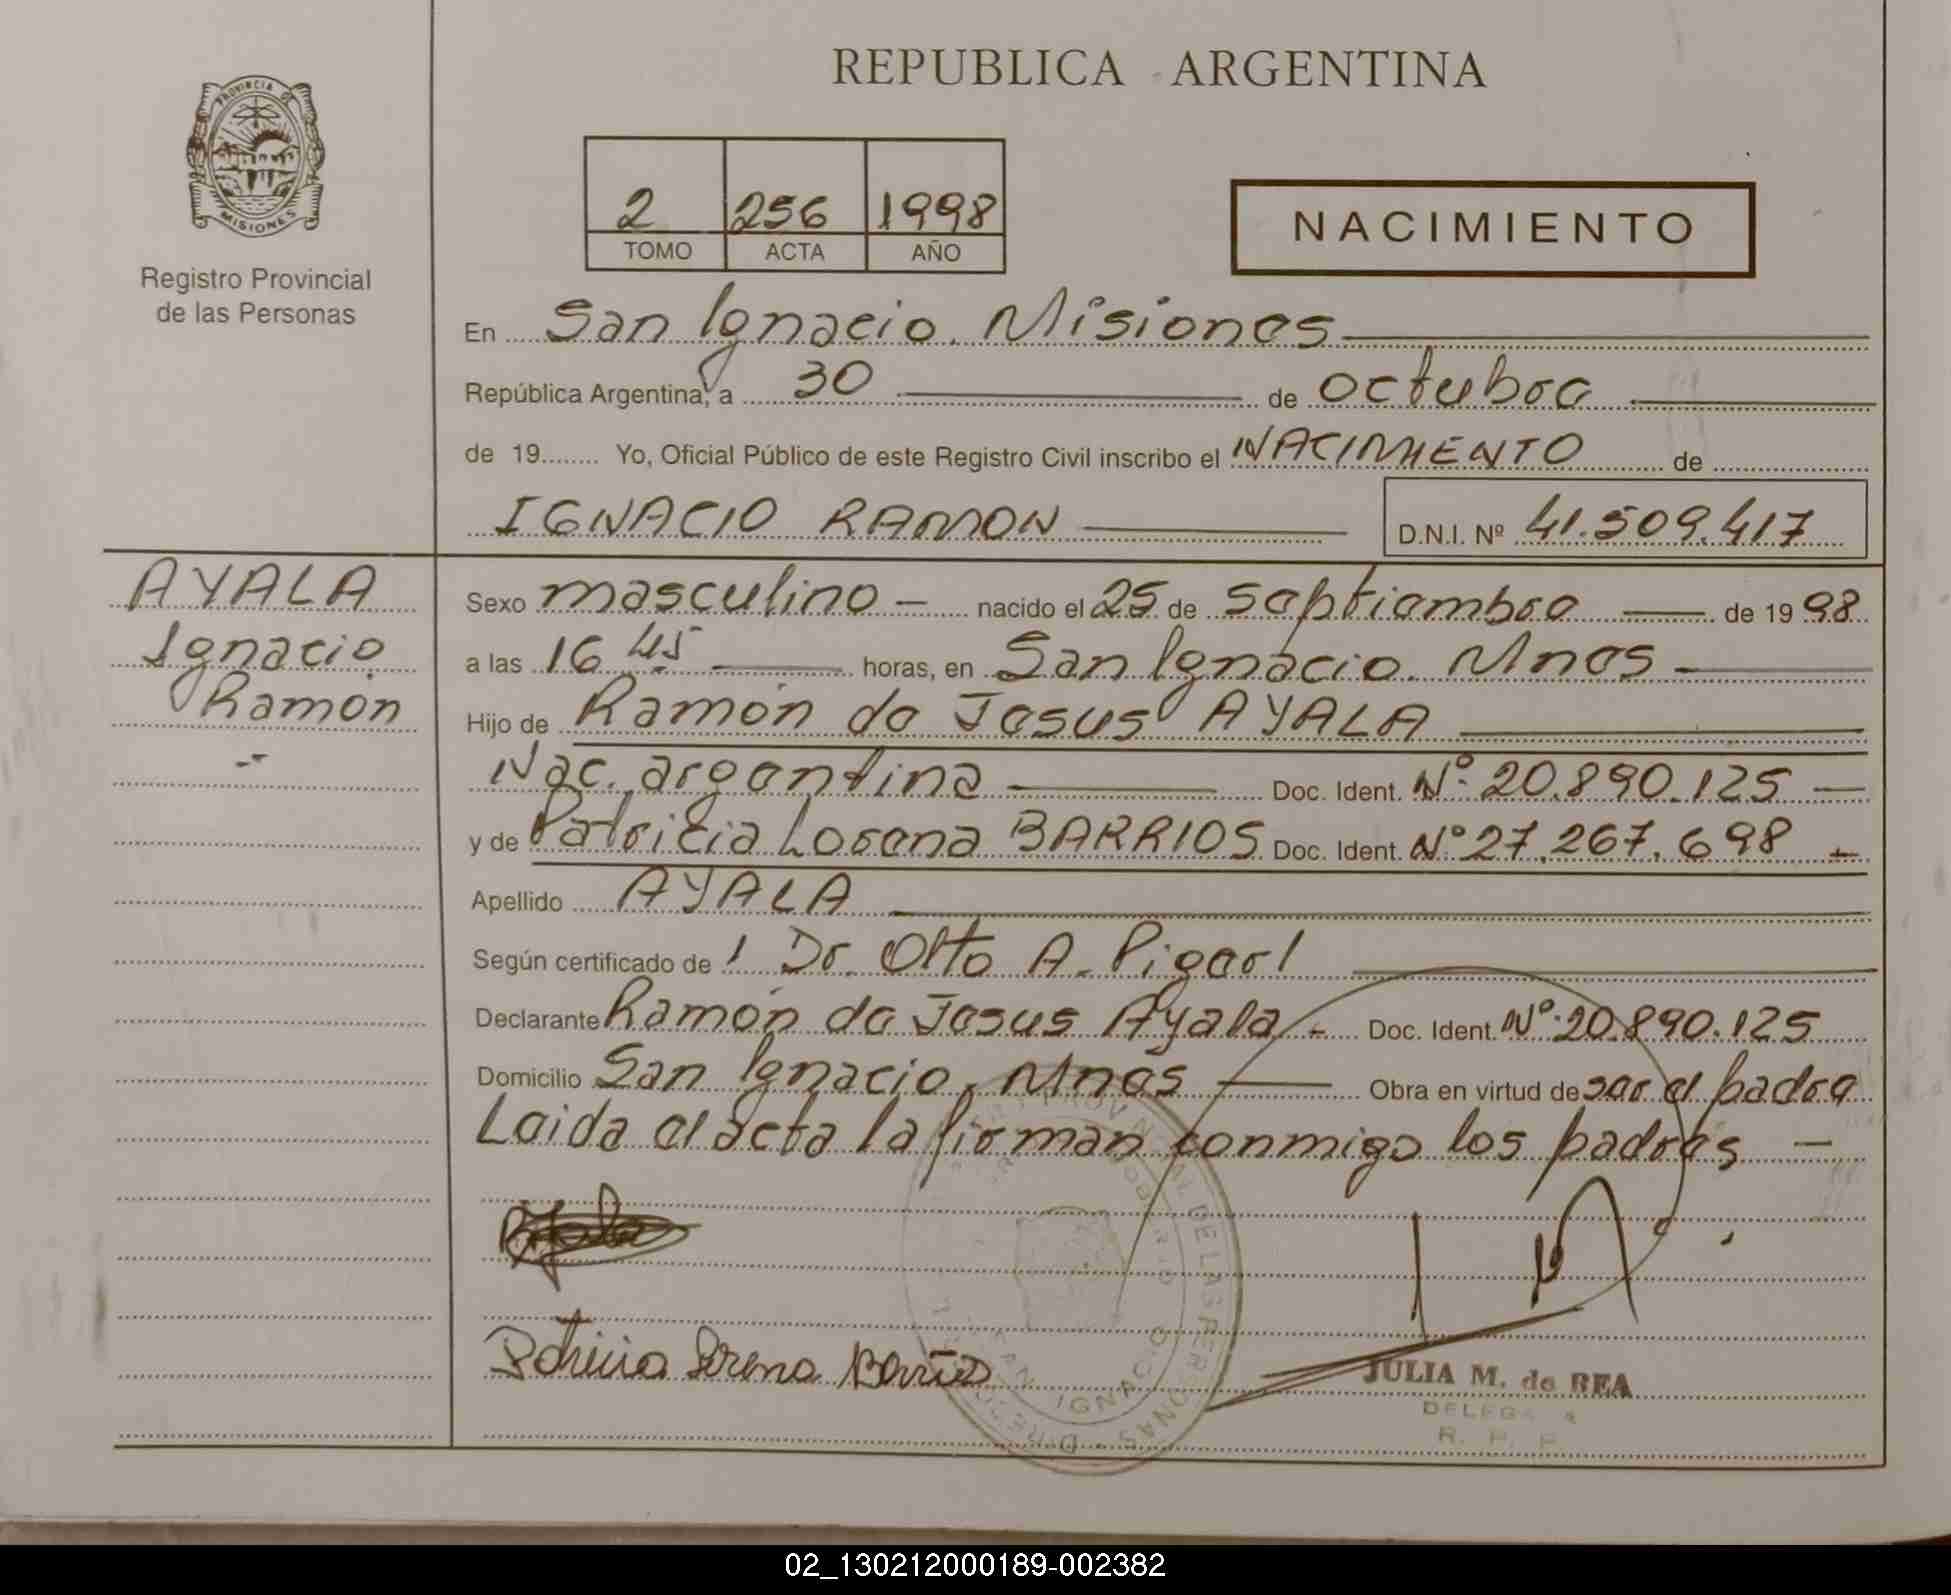 REPUBLICA ARGENTINA
PROVINCIA DE MISIONES
Registro Provincial
de las Personas
2 256 1998
TOMO ACTA AÑO
NACIMIENTO
En San Ignacio. Misiones
República Argentina, a 30 de octubre
de 19........ Yo, Oficial Público de este Registro Civil inscribo el NACIMIENTO de
IGNACIO RAMON D.N.I. Nº 41.509.417
AYALA
Ignacio
Ramón
Sexo masculino - nacido el 25 de septiembre de 1998
a las 16 45 horas, en San Ignacio. Mnes -
Hijo de Ramón de Jesus AYALA
Nac. argentina Doc. Ident. Nº 20.890.125 -
y de Patricia Lorena BARRIOS Doc. Ident. Nº 27.267.698 -
Apellido AYALA
Según certificado de 1 Dr. Otto A. Pigerl
Declarante Ramón de Jesus Ayala - Doc. Ident. Nº 20.890.125
Domicilio San Ignacio, Mnes Obra en virtud de ser el padre
Leida el acta la firman conmigo los padres -
Patricia Lorena Barrios
JULIA M. de REA
DELEGADA
R. P. P.
SAN IGNACIO
02_130212000189-002382